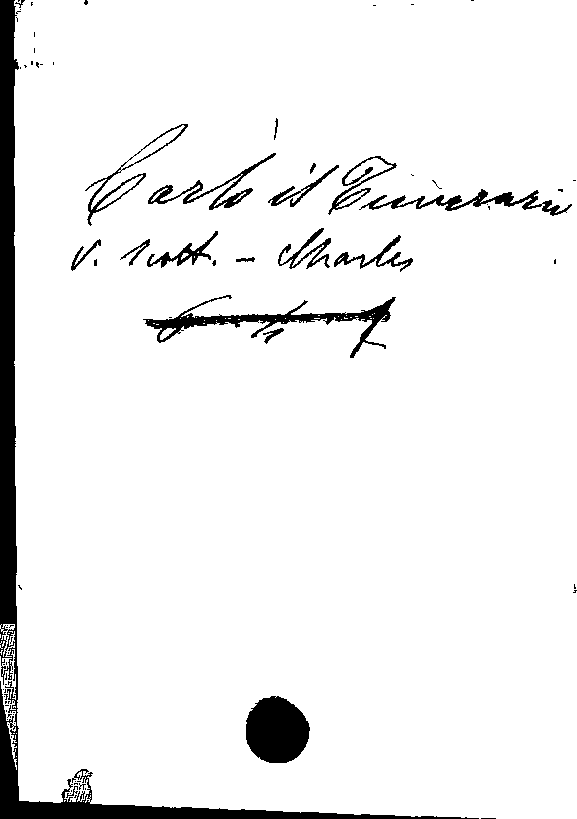 Carlo il Temerario
v. Scott. - Charles